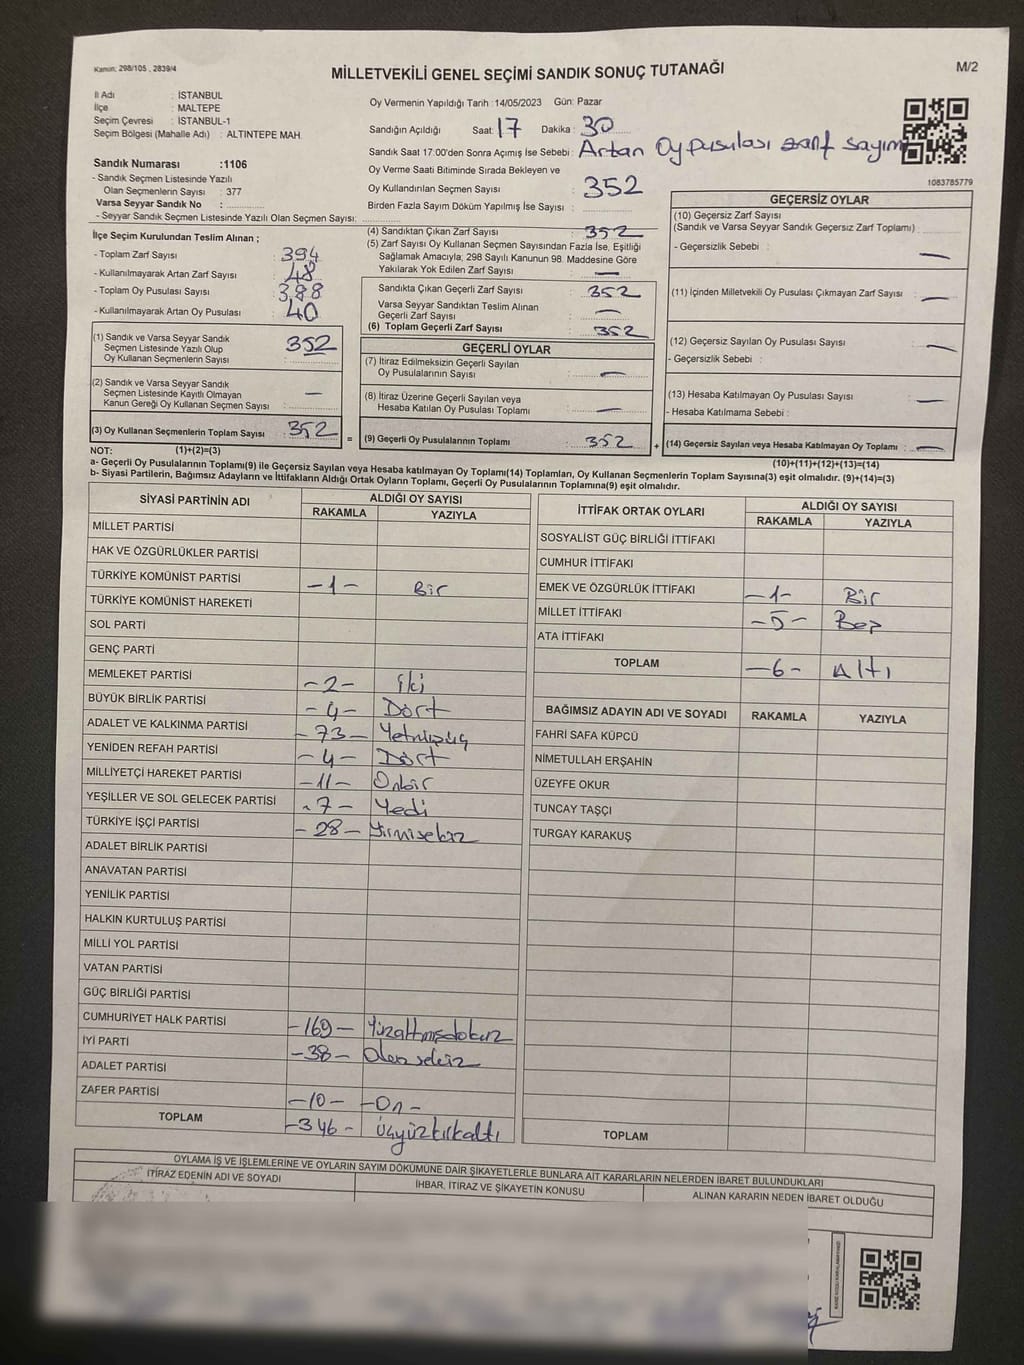 Kanun: 298/105 , 2839/4
MİLLETVEKİLİ GENEL SEÇİMİ SANDIK SONUÇ TUTANAĞI
M/2
İl Adı : İSTANBUL
İlçe : MALTEPE
Seçim Çevresi : İSTANBUL-1
Seçim Bölgesi (Mahalle Adı) : ALTINTEPE MAH.
Sandık Numarası :1106
- Sandık Seçmen Listesinde Yazılı
Olan Seçmenlerin Sayısı : 377
Varsa Seyyar Sandık No :
- Seyyar Sandık Seçmen Listesinde Yazılı Olan Seçmen Sayısı:
Oy Vermenin Yapıldığı Tarih :14/05/2023 Gün: Pazar
Sandığın Açıldığı Saat: 17 Dakika : 30
Sandık Saat 17:00'den Sonra Açımış İse Sebebi : Artan Oy pusulası zarf sayım
Oy Verme Saati Bitiminde Sırada Bekleyen ve
Oy Kullandırılan Seçmen Sayısı : 352
Birden Fazla Sayım Döküm Yapılmış İse Sayısı :
1083785779
İlçe Seçim Kurulundan Teslim Alınan ;
- Toplam Zarf Sayısı : 394
- Kullanılmayarak Artan Zarf Sayısı : 48
- Toplam Oy Pusulası Sayısı : 388
- Kullanılmayarak Artan Oy Pusulası : 40
(1) Sandık ve Varsa Seyyar Sandık
Seçmen Listesinde Yazılı Olup
Oy Kullanan Seçmenlerin Sayısı : 352
(2) Sandık ve Varsa Seyyar Sandık
Seçmen Listesinde Kayıtlı Olmayan
Kanun Gereği Oy Kullanan Seçmen Sayısı : —
(3) Oy Kullanan Seçmenlerin Toplam Sayısı : 352
(4) Sandıktan Çıkan Zarf Sayısı : 352
(5) Zarf Sayısı Oy Kullanan Seçmen Sayısından Fazla İse, Eşitliği
Sağlamak Amacıyla, 298 Sayılı Kanunun 98. Maddesine Göre
Yakılarak Yok Edilen Zarf Sayısı : —
Sandıkta Çıkan Geçerli Zarf Sayısı : 352
Varsa Seyyar Sandıktan Teslim Alınan
Geçerli Zarf Sayısı : —
(6) Toplam Geçerli Zarf Sayısı : 352
GEÇERLİ OYLAR
(7) İtiraz Edilmeksizin Geçerli Sayılan
Oy Pusulalarının Sayısı : —
(8) İtiraz Üzerine Geçerli Sayılan veya
Hesaba Katılan Oy Pusulası Toplamı : —
= (9) Geçerli Oy Pusulalarının Toplamı : 352
GEÇERSİZ OYLAR
(10) Geçersiz Zarf Sayısı
(Sandık ve Varsa Seyyar Sandık Geçersiz Zarf Toplamı) :
- Geçersizlik Sebebi : —
(11) İçinden Milletvekili Oy Pusulası Çıkmayan Zarf Sayısı : —
(12) Geçersiz Sayılan Oy Pusulası Sayısı : —
- Geçersizlik Sebebi :
(13) Hesaba Katılmayan Oy Pusulası Sayısı : —
- Hesaba Katılmama Sebebi :
+ (14) Geçersiz Sayılan veya Hesaba Katılmayan Oy Toplamı : —
NOT: (1)+(2)=(3)
(10)+(11)+(12)+(13)=(14)
a- Geçerli Oy Pusulalarının Toplamı(9) ile Geçersiz Sayılan veya Hesaba katılmayan Oy Toplamı(14) Toplamları, Oy Kullanan Seçmenlerin Toplam Sayısına(3) eşit olmalıdır. (9)+(14)=(3)
b- Siyasi Partilerin, Bağımsız Adayların ve İttifakların Aldığı Ortak Oyların Toplamı, Geçerli Oy Pusulalarının Toplamına(9) eşit olmalıdır.
SİYASİ PARTİNİN ADI ALDIĞI OY SAYISI
RAKAMLA YAZIYLA
MİLLET PARTİSİ
HAK VE ÖZGÜRLÜKLER PARTİSİ
TÜRKİYE KOMÜNİST PARTİSİ -1- Bir
TÜRKİYE KOMÜNİST HAREKETİ
SOL PARTİ
GENÇ PARTİ
MEMLEKET PARTİSİ -2- iki
BÜYÜK BİRLİK PARTİSİ -4- Dört
ADALET VE KALKINMA PARTİSİ -73- Yetmişüç
YENİDEN REFAH PARTİSİ -4- Dört
MİLLİYETÇİ HAREKET PARTİSİ -11- Onbir
YEŞİLLER VE SOL GELECEK PARTİSİ -7- Yedi
TÜRKİYE İŞÇİ PARTİSİ -28- Yirmisekiz
ADALET BİRLİK PARTİSİ
ANAVATAN PARTİSİ
YENİLİK PARTİSİ
HALKIN KURTULUŞ PARTİSİ
MİLLİ YOL PARTİSİ
VATAN PARTİSİ
GÜÇ BİRLİĞİ PARTİSİ
CUMHURİYET HALK PARTİSİ -169- Yüzaltmışdokuz
İYİ PARTİ -38- Otuzsekiz
ADALET PARTİSİ
ZAFER PARTİSİ -10- -On-
TOPLAM -346- Üçyüzkırkaltı
İTTİFAK ORTAK OYLARI ALDIĞI OY SAYISI
RAKAMLA YAZIYLA
SOSYALİST GÜÇ BİRLİĞİ İTTİFAKI
CUMHUR İTTİFAKI
EMEK VE ÖZGÜRLÜK İTTİFAKI -1- Bir
MİLLET İTTİFAKI -5- Beş
ATA İTTİFAKI
TOPLAM -6- Altı
BAĞIMSIZ ADAYIN ADI VE SOYADI RAKAMLA YAZIYLA
FAHRİ SAFA KÜPCÜ
NİMETULLAH ERŞAHİN
ÜZEYFE OKUR
TUNCAY TAŞÇI
TURGAY KARAKUŞ
TOPLAM
OYLAMA İŞ VE İŞLEMLERİNE VE OYLARIN SAYIM DÖKÜMÜNE DAİR ŞİKAYETLERLE BUNLARA AİT KARARLARIN NELERDEN İBARET BULUNDUKLARI
İTİRAZ EDENİN ADI VE SOYADI İHBAR, İTİRAZ VE ŞİKAYETİN KONUSU ALINAN KARARIN NEDEN İBARET OLDUĞU